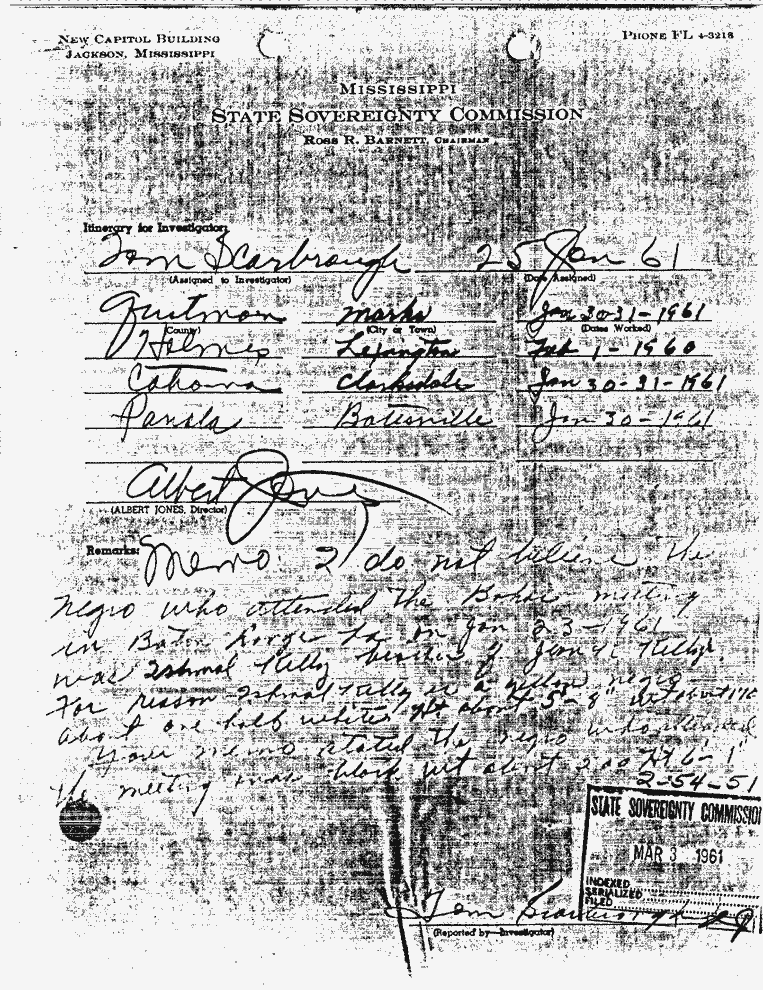 NEW CAPITOL BUILDING
JACKSON, MISSISSIPPI
PHONE FL 4-3218
MISSISSIPPI
STATE SOVEREIGNTY COMMISSION
ROSS R. BARNETT, CHAIRMAN
Itinerary for Investigator:
Tom Scarbrough 25 Jan 61
(Assigned to Investigator) (Date Assigned)
Quitman Marks Jan 30-31-1961
(County) (City or Town) (Dates Worked)
Holmes Lexington Feb 1-1960
Cohoma Clarksdale Jan 30-31-1961
Panola Batesville Jan 30-1961
Albert Jones
(ALBERT JONES, Director)
Remarks: Memo. I do not believe the
negro who attended the meeting
in Baton Rouge La on Jan 23-1961
was Ishmal Kelly brother of Kellys
For reason Ishmal Kelly is a negro
about one half white wt about 5-8"
Your memo stated the negro who attended
the meeting was black wt about 200 Ht 6-1"
2-54-51
STATE SOVEREIGNTY COMMISSION
MAR 3 1961
INDEXED
SERIALIZED
FILED
Tom Scarbrough
(Reported by Investigator)